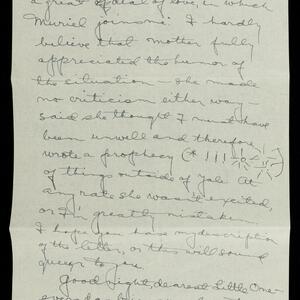 a great deal of love, in which
Muriel joins me. I hardly
believe that mother fully
appreciated the humor of
the situation - she made
no criticism either way -
said she thought I must have
been unwell and therefore
wrote a prophecy (* !!!
of things outside of Yale. At
any rate she wasn't excited,
or I'm greatly mistaken.
I hope you have my description
of the letter, or this will sound
queer to you.
Good Night, dearest Little One -